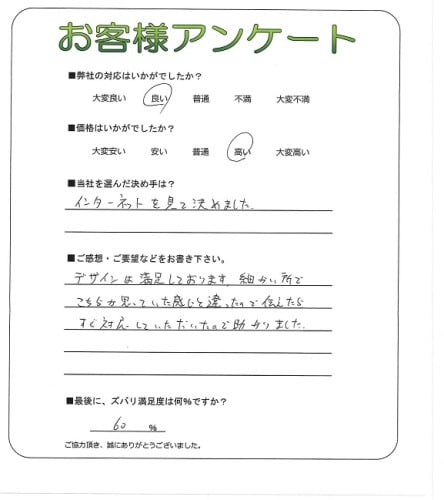 お客様アンケート
■弊社の対応はいかがでしたか？
大変良い 良い 普通 不満 大変不満
■価格はいかがでしたか？
大変安い 安い 普通 高い 大変高い
■当社を選んだ決め手は？
インターネットを見て決めました。
■ご感想・ご要望などをお書き下さい。
デザインは満足しております。細かい所で
こちらが思っていた感じと違ったので伝えたら
すぐ対応していただいたので助かりました。
■最後に、ズバリ満足度は何％ですか？
60 ％
ご協力頂き、誠にありがとうございました。